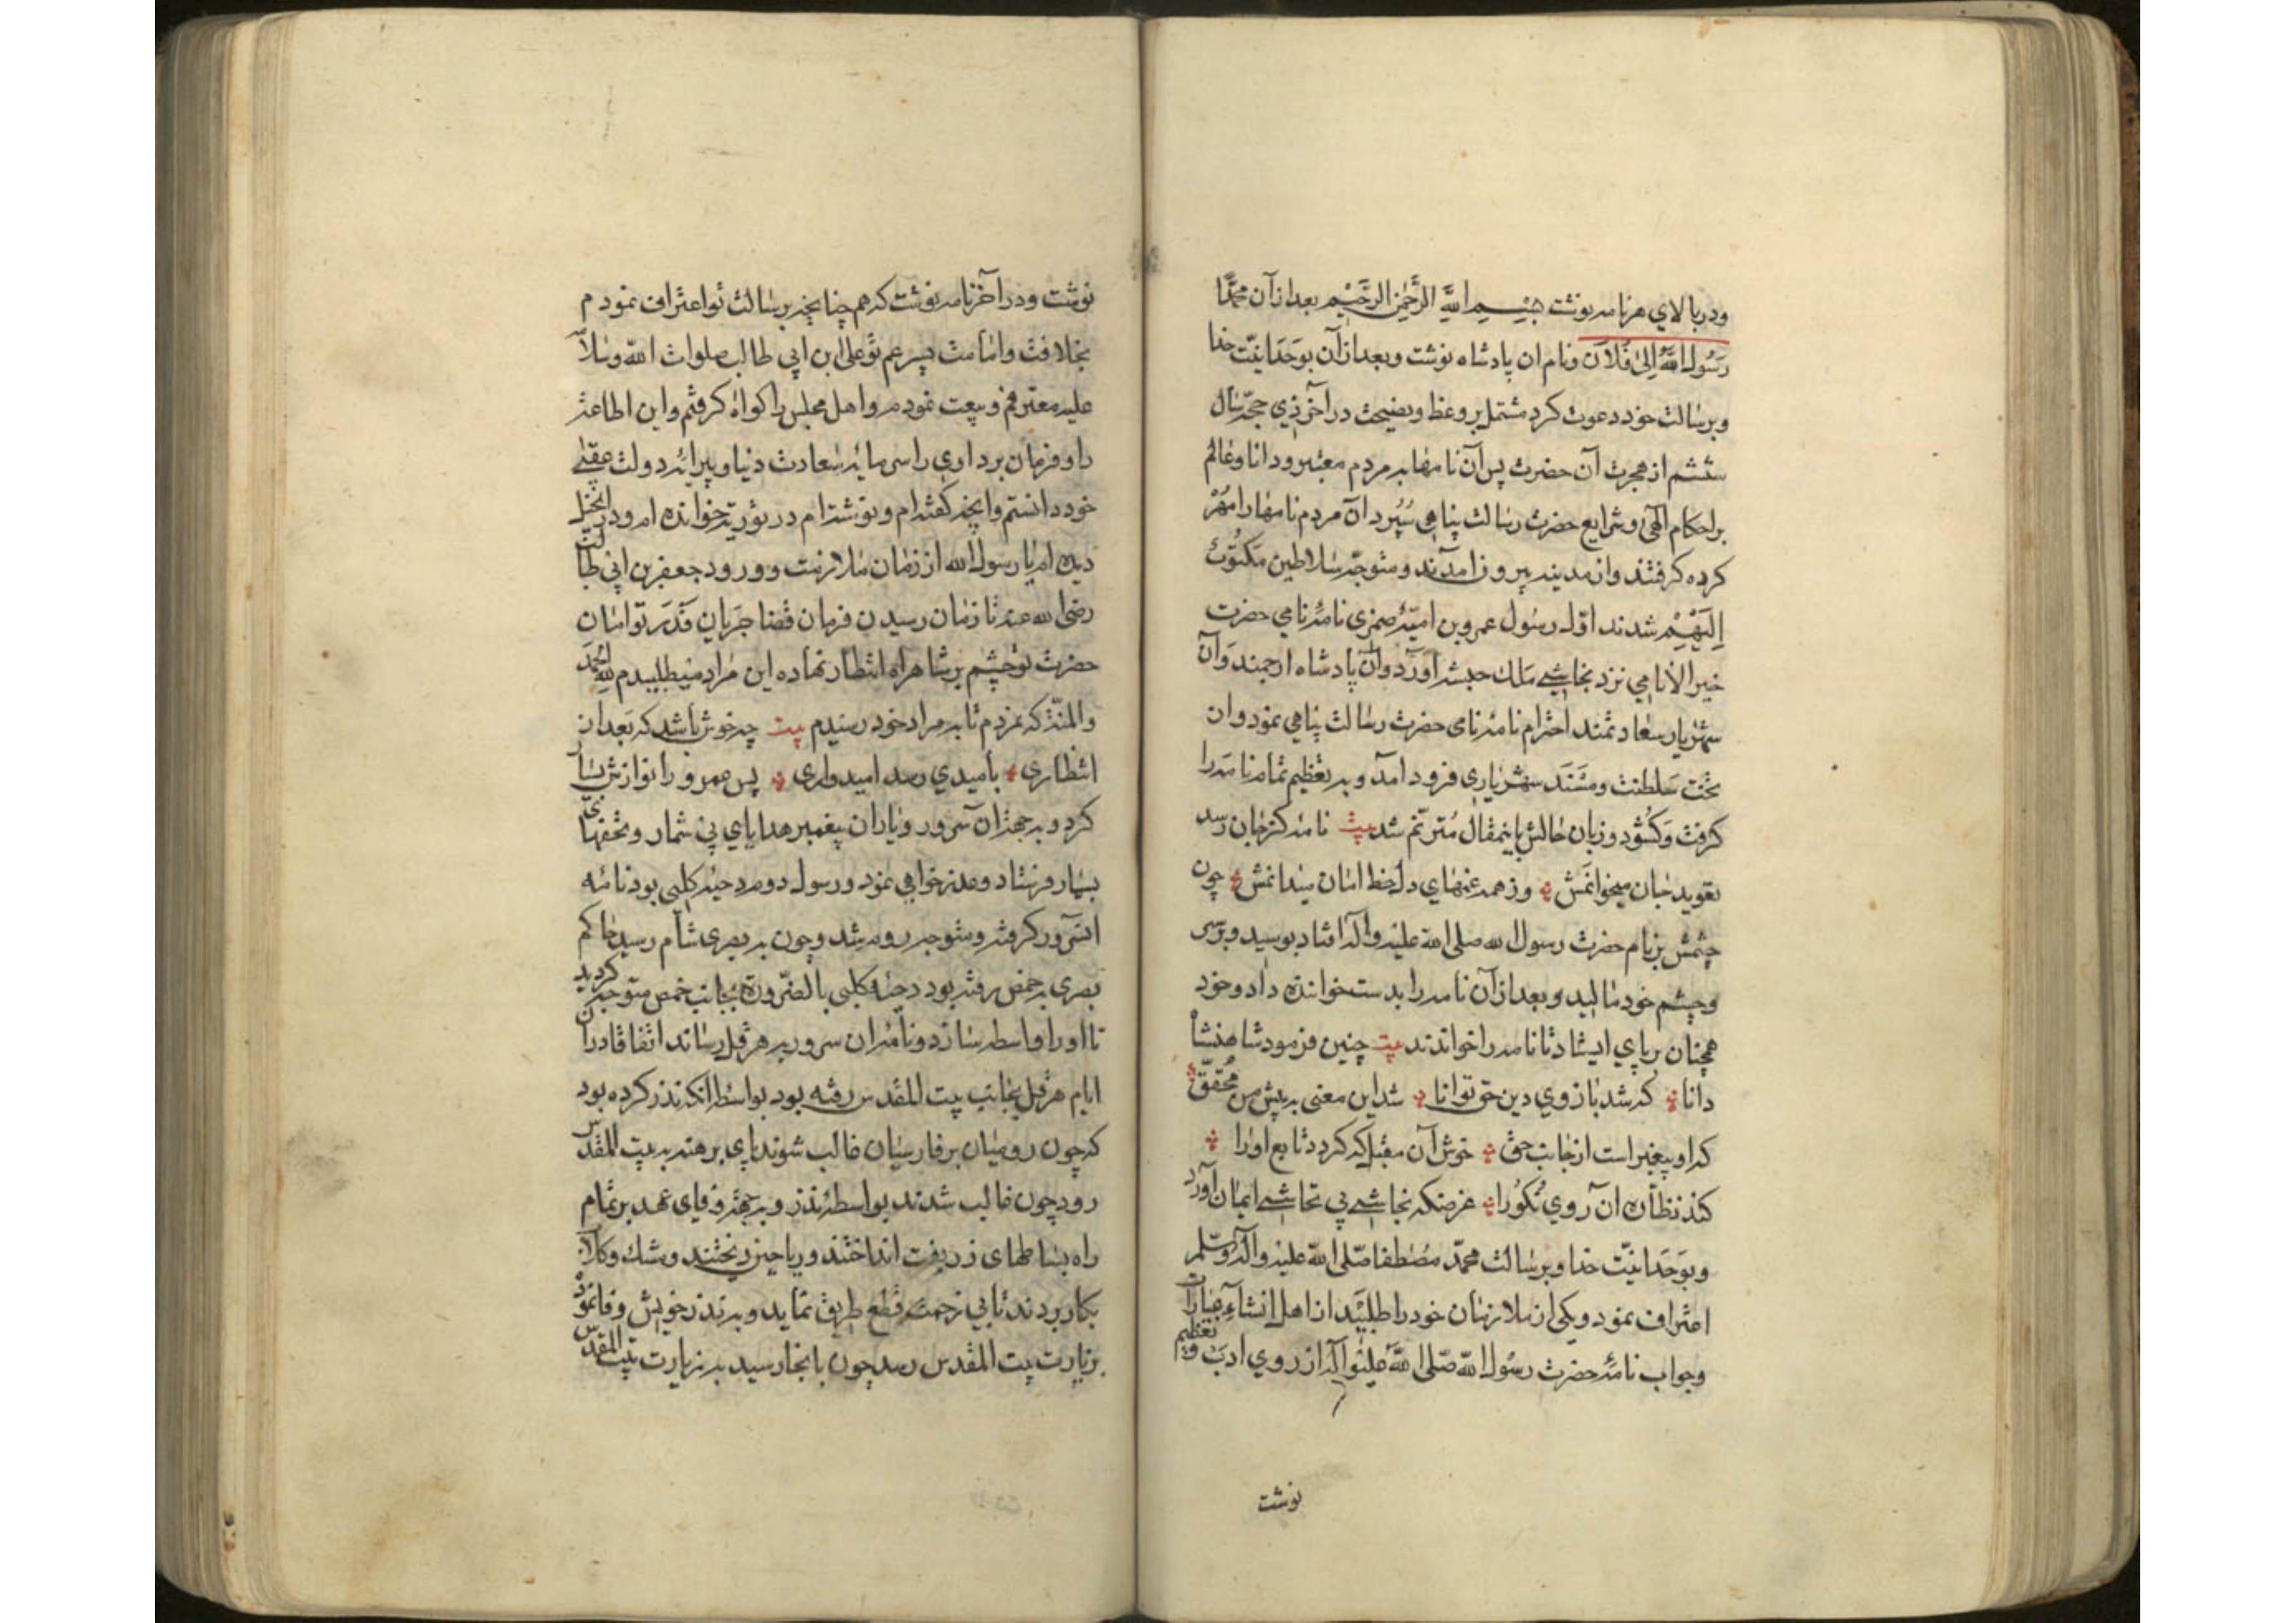 ودر بالای هر نامه نوشت بِسْمِ اللَّهِ الرَّحْمٰنِ الرَّحِيْمِ بعد ازان محمّدًا
رَسُولُ اللهِ اِلىٰ فُلَان ونام ان پادشاه نوشت وبعد ازان بوَحدَانیّت خدا
وبرسالت خود دعوت کرد مشتمل بر وعظ ونصیحت در آخر ذی حجّه سال
ششم از هجرت آن حضرت پس آن نامها بمردم معتبر ودانا وعالم
بر احکام الهی وشرایع حضرت رسالت پناهی سُپُرد آن مردم نامها را مُهْرْ
کرده گرفتند واز مدینه بیرون امدند ومتوجّه سلاطین مَکتُوبْ
اِلَیْهِمْ شدند اوّل رسُول عمرو بن امیّهٔ ضمری نامهٔ نامی حضرت
خیر الانامی نزد نجاشی مَلِك حبشه آورد وان پادشاه ارجمند وَآن
شهریار سعادتمند احترام نامهٔ نامی حضرت رسالت پناهی نمود وان
تخت سَلطنت ومَسْنَد شهریاری فرود امد وبه تعظیم تمام نامه را
گرفت وکَشُود وزبان حالش باینمقال مُترنّم شد بیت نامه کز جان رسد
تعوید جان میخوانمش وز همه غمهای دل خط امان میدانمش چون
چشمش بر نام حضرت رسول الله صلی الله علیه واله افتاد ببوسید وبرسر
وچشم خود مالید وبعد ازان نامه را بدست خواننده داد وخود
همچنان بر پای ایستاد تا نامه را خواندند بیت چنین فرمود شاهنشاه
دانا که شد بازوی دین حق توانا شد این معنی به پیش من مُحَقّق
که او پیغمبر است از جانب حق خوش آن مقبل که گردد تابع او را
کند نظاره ان روی نکُو را غرضکه نجاشی بی تحاشی ایمان آورد
وبوَحَدانیّت خدا وبرسالت محمّد مصطفا صّلی الله علیه واله وسلّم
اعتراف نمود ویکی از ملازمان خود را طلبید از اهل انشاء عبارات
وجواب نامهٔ حضرت رسُول الله صّلی اللهُ علیه واله از روی ادب وتعظیم
نوشت
نوشت ودر آخر نامه نوشت که همچنانچه برسالت تو اعتراف نمودم
بخلافت وامامت پسر عم تو علی ابن ابی طالب صلوات الله وسلامه
علیه معترفم وبیعت نمودم واهل مجلس را گواه گرفتم واین اطاعت
را وفرمان برداری را سرمایهٔ سعادت دنیا وپیرایهٔ دولت عقبی
خود دانستم وانچه گفته‌ام ونوشته‌ام در توریة خوانده‌ام ودر انجیل
دیده‌ام یا رسول الله از زمان ملازمت وورود جعفر بن ابی طالب
رضی الله عنه تا زمان رسیدن فرمان قضا جریان قَدَر تواُمان
حضرت تو چشم بر شاهراه انتظار نهاده این مراد میطلبیدم لله الحمد
والمنّة که نمردم تا بمراد خود رسیدم بیت چه خوش باشد که بعد از
انتظاری بامیدی رسد امیدواری پس عمرو را نوازش بسیار
کرد وبه جهة آن سرور ویاران پیغمبر هدایای بی شمار وتحفهای
بسیار فرستاد وعذرخواهی نمود ورسول دوم دحیه کلبی بود نامه
انسرور گرفته ومتوجه روم شد وچون به بصری شام رسید حاکم
بصری به حمص رفته بود دحیهٔ کلبی بالضرورة بجانب حمص متوجه گردید
تا او را واسطه سازد ونامهٔ ان سرور به هرقل رساند اتفاقا دران
ایام هرقل بجانب بیت المقدس رفته بود بواسطه انکه نذر کرده بود
که چون رومیان بر فارسیان غالب شوند پای برهنه به بیت المقدس
رود چون غالب شدند بواسطهٔ نذر وبه جهة وفای عهد بر تمام
راه بساطهای زربفت انداختند وریاحین ریختند ومشك وگلاب
بکار بردند تا بی زحمت قطع طریق نماید وبه نذر خویش وفا نموده
بزیارت بیت المقدس رسد چون بانجا رسید به زیارت بیت المقدس